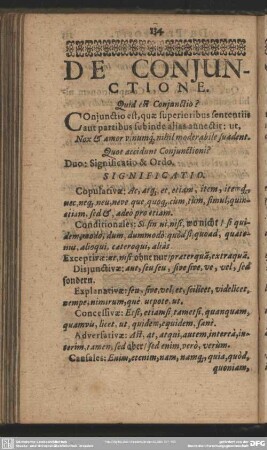 134
DE CONJUN-
CTIONE.
Quid est Conjunctio?
Conjunctio est, quæ superioribus sententiis
aut partibus subinde alias annectit: ut,
Nox & amor vinumq; nihil moderabile suadent.
Quot accidunt Conjunctioni?
Duo: Significatio & Ordo.
SIGNIFICATIO.
Copulativæ: Ac, atq;, et, etiam, item, itemq;,
nec, neq;, neu, neve, que, quoq;, cùm, tùm, simul, quin-
etiam, sed &, adeò pro etiam.
Conditionales: Si, sin, ni, nisi, wo nicht / si qui-
dem, modò, dum, dummodò, quòd si, quoad, quate-
nus, alioqui, cateroqui, aliàs
Exceptivæ: ut, nisi, præterquã, extraquã.
Disjunctivæ: aut, seu, sive, ve, vel, sed
sondern.
Explanativæ: seu, sive, vel, et, scilicet, videlicet,
nempe, nimirum, quæ, utpote, ut.
Concessivæ: Etsi, etiamsi, tametsi, quanquam,
quamvis, licet, ut, quidem, equidem, sanè.
Adversativæ: Ast, at, atqui, autem, intereà, in-
terim, tamen, sed aber / sed enim, verò, verùm.
Causales: Enim, etenim, nam, namq;, quia, quòd,
quoniam,